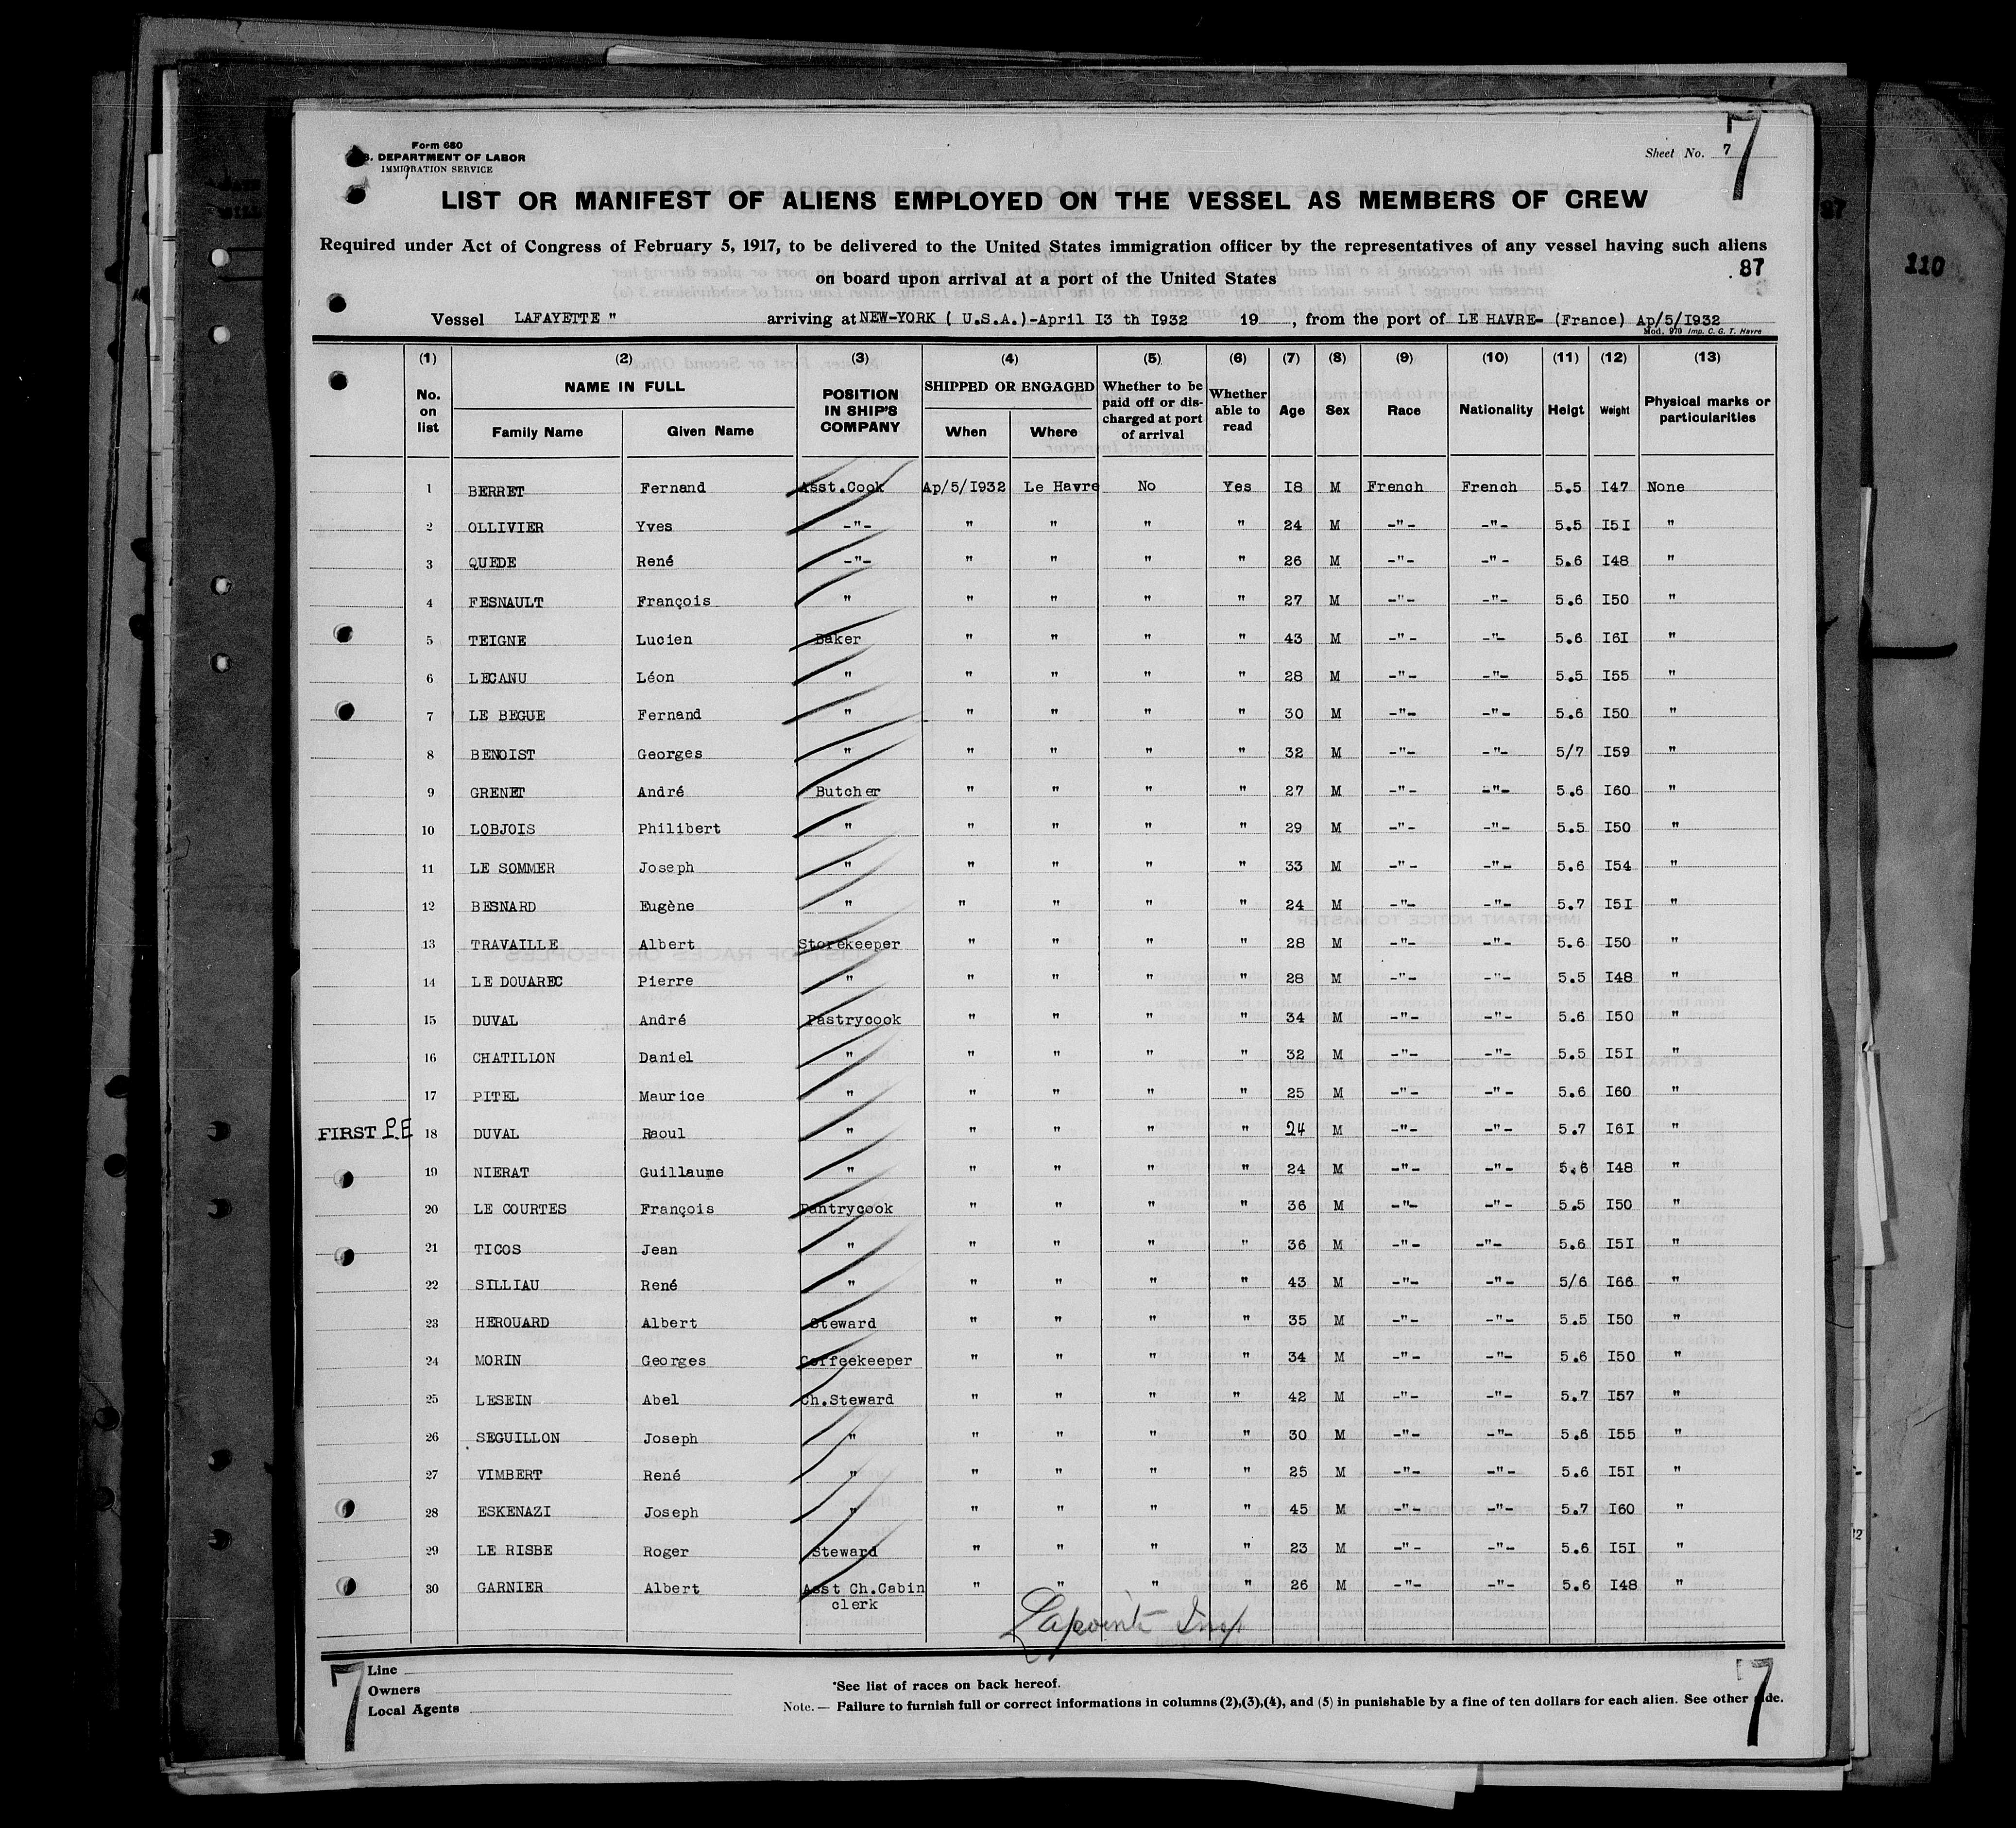 Form 680
S. DEPARTMENT OF LABOR
IMMIGRATION SERVICE
Sheet No. 7
7
LIST OR MANIFEST OF ALIENS EMPLOYED ON THE VESSEL AS MEMBERS OF CREW
Required under Act of Congress of February 5, 1917, to be delivered to the United States immigration officer by the representatives of any vessel having such aliens
on board upon arrival at a port of the United States
87
110
Vessel LAFAYETTE " arriving at NEW-YORK ( U.S.A.)-April I3 th I932 19 , from the port of LE HAVRE- (France) Ap/5/I932
Mod. 970 Imp. C. G. T. Havre
(1) (2) (3) (4) (5) (6) (7) (8) (9) (10) (11) (12) (13)
No. on list NAME IN FULL Family Name Given Name POSITION IN SHIP'S COMPANY SHIPPED OR ENGAGED When Where Whether to be paid off or discharged at port of arrival Whether able to read Age Sex Race Nationality Heigt Weight Physical marks or particularities
1 BERRET Fernand Asst.Cook Ap/5/I932 Le Havre No Yes I8 M French French 5.5 I47 None
2 OLLIVIER Yves -"- " " " " 24 M -"- -"- 5.5 I5I "
3 QUEDE René -"- " " " " 26 M -"- -"- 5.6 I48 "
4 FESNAULT François " " " " " 27 M -"- -"- 5.6 I50 "
5 TEIGNE Lucien Baker " " " " 43 M -"- -"- 5.6 I6I "
6 LECANU Léon " " " " " 28 M -"- -"- 5.5 I55 "
7 LE BEGUE Fernand " " " " " 30 M -"- -"- 5.6 I50 "
8 BENOIST Georges " " " " " 32 M -"- -"- 5/7 I59 "
9 GRENET André Butcher " " " " 27 M -"- -"- 5.6 I60 "
10 LOBJOIS Philibert " " " " " 29 M -"- -"- 5.5 I50 "
11 LE SOMMER Joseph " " " " " 33 M -"- -"- 5.6 I54 "
12 BESNARD Eugène " " " " " 24 M -"- -"- 5.7 I5I "
13 TRAVAILLE Albert Storekeeper " " " " 28 M -"- -"- 5.6 I50 "
14 LE DOUAREC Pierre " " " " " 28 M -"- -"- 5.5 I48 "
15 DUVAL André Pastrycook " " " " 34 M -"- -"- 5.6 I50 "
16 CHATILLON Daniel " " " " " 32 M -"- -"- 5.5 I5I "
17 PITEL Maurice " " " " " 25 M -"- -"- 5.6 I60 "
FIRST P.E 18 DUVAL Raoul " " " " " 24 M -"- -"- 5.7 I6I "
19 NIERAT Guillaume " " " " " 24 M -"- -"- 5.6 I48 "
20 LE COURTES François Pantrycook " " " " 36 M -"- -"- 5.5 I50 "
21 TICOS Jean " " " " " 36 M -"- -"- 5.6 I5I "
22 SILLIAU René " " " " " 43 M -"- -"- 5/6 I66 "
23 HEROUARD Albert Steward " " " " 35 M -"- -"- 5.5 I50 "
24 MORIN Georges Coffeekeeper " " " " 34 M -"- -"- 5.6 I50 "
25 LESEIN Abel Ch.Steward " " " " 42 M -"- -"- 5.7 I57 "
26 SEGUILLON Joseph " " " " " 30 M -"- -"- 5.6 I55 "
27 VIMBERT René " " " " " 25 M -"- -"- 5.6 I5I "
28 ESKENAZI Joseph " " " " " 45 M -"- -"- 5.7 I60 "
29 LE RISBE Roger Steward " " " " 23 M -"- -"- 5.6 I5I "
30 GARNIER Albert Asst Ch.Cabin clerk " " " " 26 M -"- -"- 5.6 I48 "
Lapointe Insp
7
Line
Owners
Local Agents
*See list of races on back hereof.
Note.— Failure to furnish full or correct informations in columns (2),(3),(4), and (5) in punishable by a fine of ten dollars for each alien. See other side.
7